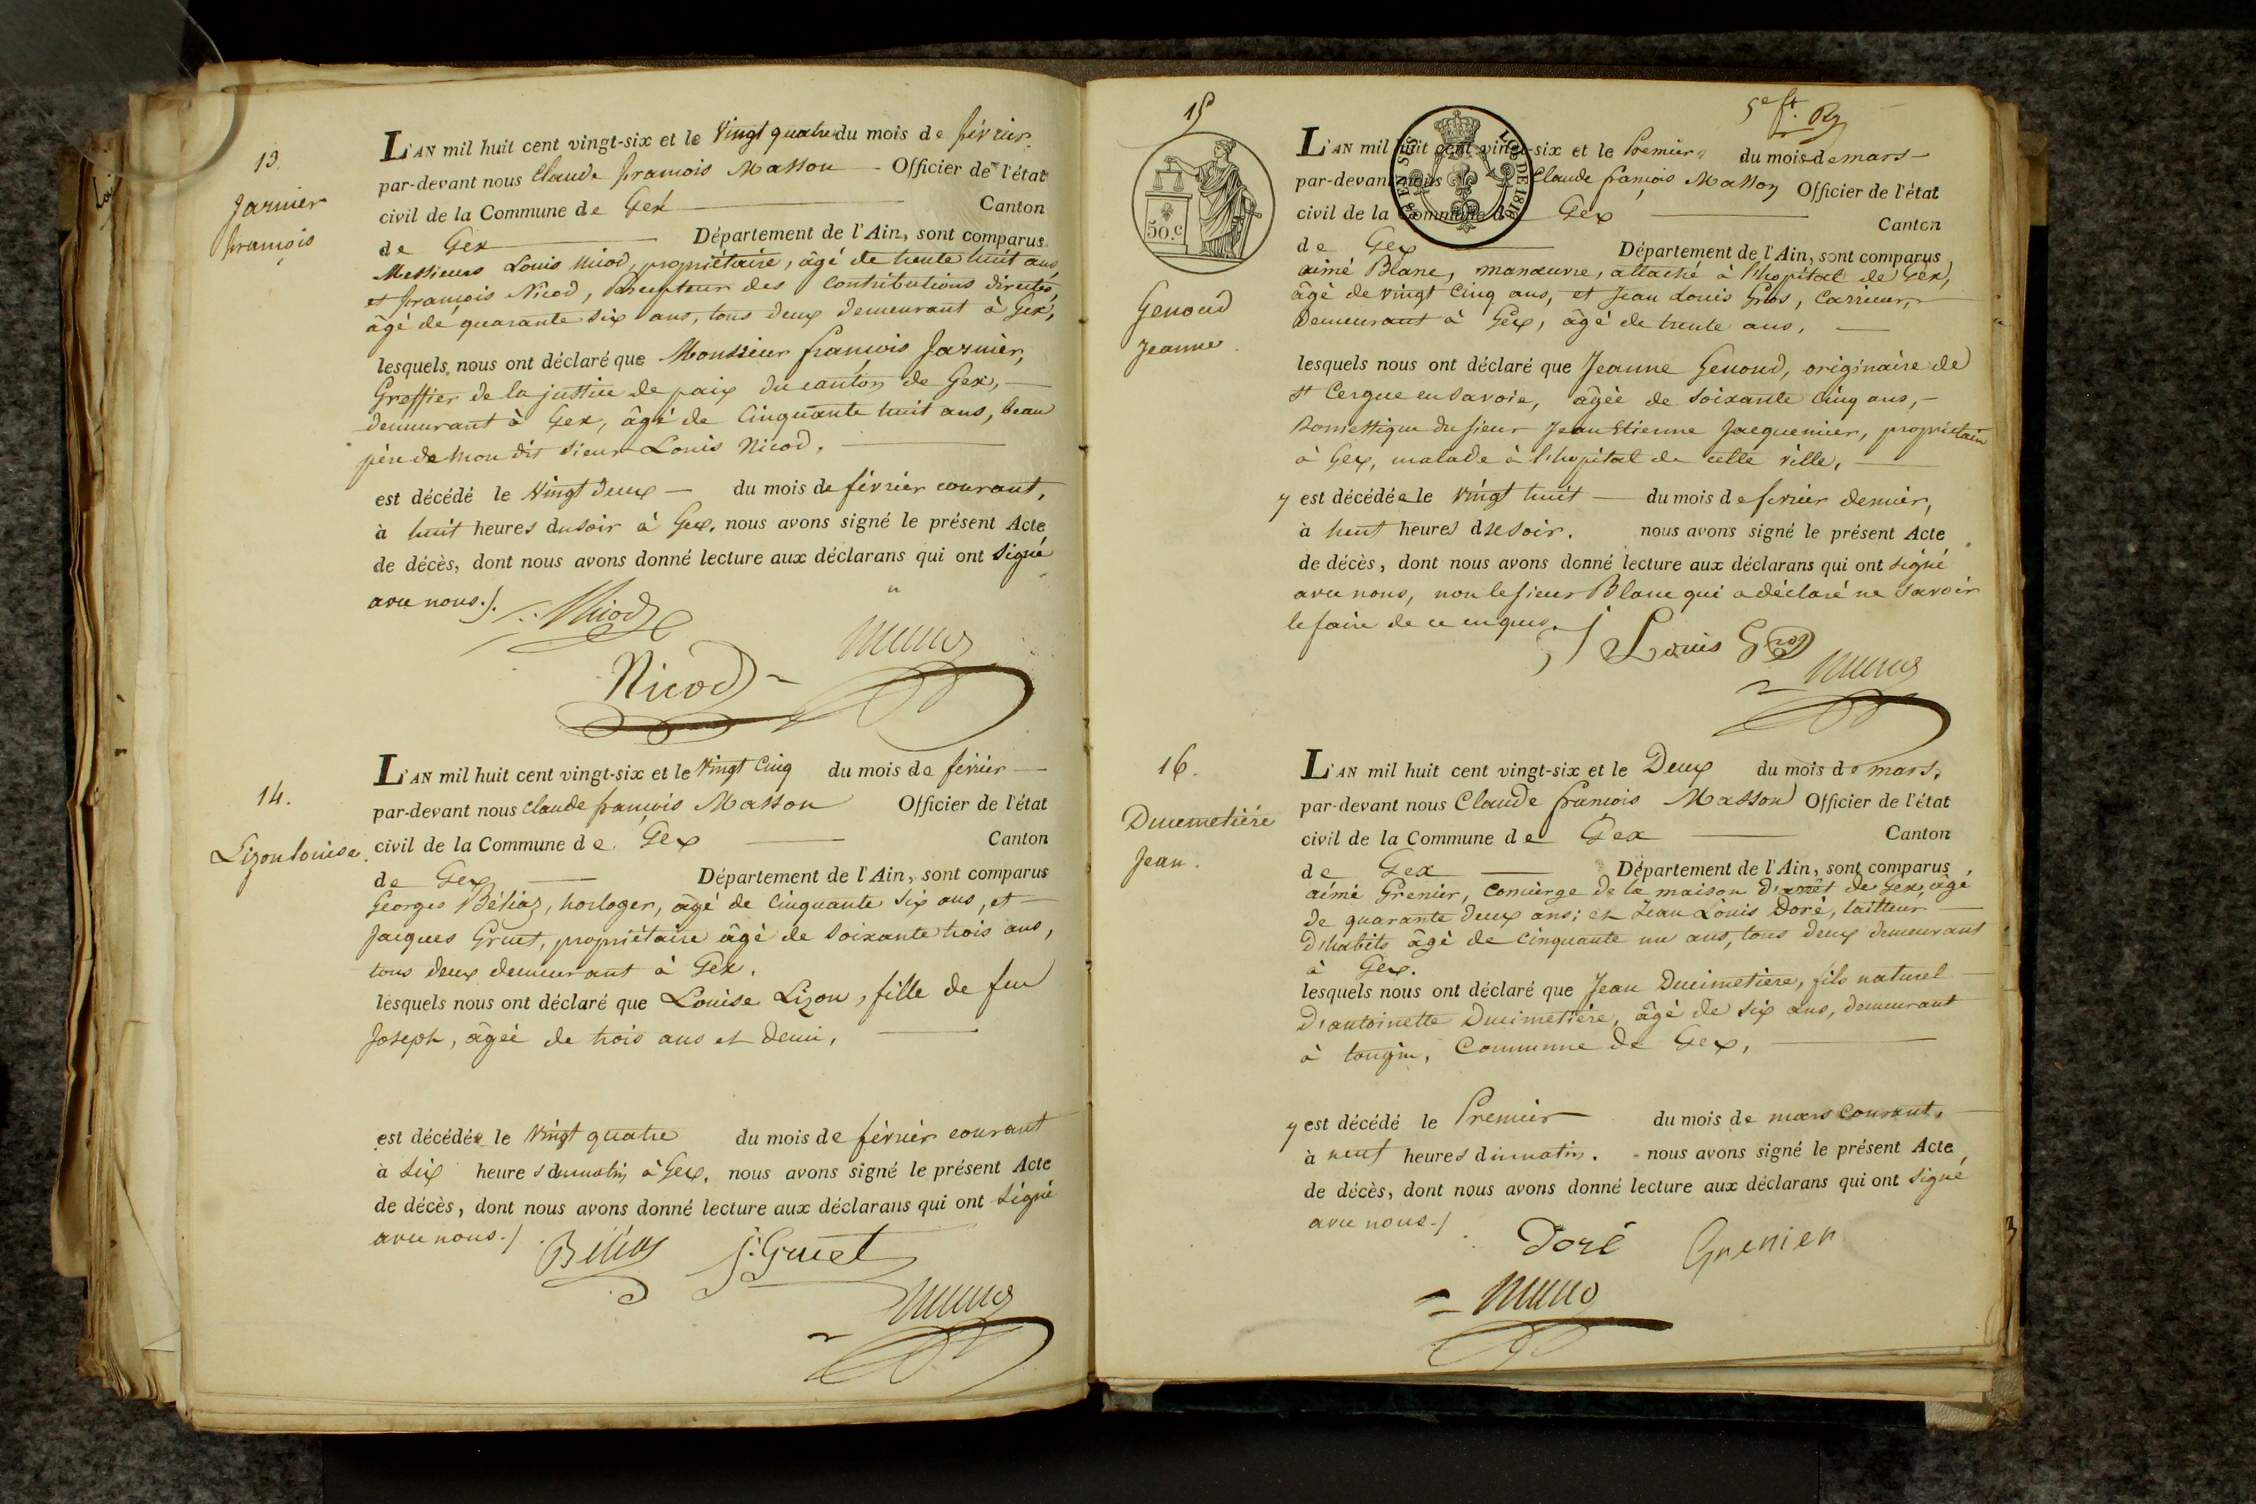 13.
Jarnier
françois
L'AN mil huit cent vingt-six et le Vingt quatre du mois de février.
par-devant nous Claude françois Masson - Officier de l'état
civil de la Commune de Gex Canton
de Gex Département de l'Ain, sont comparus
Messieurs Louis Nicod, propriétaire, âgé de trente huit ans,
et françois Nicod, percepteur des Contributions directes,
âgé de quarante six ans, tous deux demeurant à Gex,
lesquels nous ont déclaré que Monsieur françois Jarnier,
Greffier de la justice de paix du canton de Gex, —
demeurant à Gex, âgé de Cinquante huit ans, beau
père de mon dit sieur Louis Nicod.
est décédé le Vingt deux — du mois de février courant,
à huit heures du soir à Gex. nous avons signé le présent Acte
de décès, dont nous avons donné lecture aux déclarans qui ont signé
avec nous./.
Nicod
Nicod
14.
Lizon Louise.
L'AN mil huit cent vingt-six et le Vingt Cinq du mois de février —
par-devant nous Claude françois Masson Officier de l'état
civil de la Commune de Gex — Canton
de Gex — Département de l'Ain, sont comparus
Georges Béliaz, horloger, âgé de Cinquante Six ans, et —
Jacques Gruet, propriétaire âgé de Soixante trois ans,
tous deux demeurant à Gex.
lesquels nous ont déclaré que Louise Lizon, fille de feu
Joseph, âgée de trois ans et demi,
est décédée le Vingt quatre du mois de février courant
à Six heures du matin à Gex. nous avons signé le présent Acte
de décès, dont nous avons donné lecture aux déclarans qui ont signé
avec nous./.
Béliaz J. Gruet
15
5e ft.
50.c
LOI DE 1816
Genoud
Jeanne.
L'AN mil huit cent vingt-six et le Premier du mois de mars —
par-devant nous Claude françois Masson Officier de l'état
civil de la Commune de Gex — Canton
de Gex — Département de l'Ain, sont comparus
aimé Blanc, manœuvre, attaché à l'hopital de Gex,
âgé de vingt Cinq ans, et Jean Louis Gros, Carrieur,
Demeurant à Gex, âgé de trente ans. —
lesquels nous ont déclaré que Jeanne Genoud, originaire de
st Cergue en Savoie, âgée de Soixante Cinq ans, —
Domestique du sieur Jean Etienne Jacquemier, propriétaire
à Gex, malade à l'hopital de cette ville, —
y est décédée le vingt huit — du mois de fevrier dernier,
à huit heures du soir. nous avons signé le présent Acte
de décès, dont nous avons donné lecture aux déclarans qui ont signé
avec nous, non le sieur Blanc qui a déclaré ne savoir
le faire de ce enquis./.
Louis Gros
16.
Ducimetiére
Jean.
L'AN mil huit cent vingt-six et le Deux du mois de mars,
par-devant nous Claude françois Masson Officier de l'état
civil de la Commune de Gex — Canton
de Gex — Département de l'Ain, sont comparus
aimé Grenier, Concierge de la maison d'arrêt de Gex, âgé
de quarante deux ans; et Jean Louis Doré, tailleur —
D'habits âgé de cinquante un ans, tous deux demeurant
à Gex.
lesquels nous ont déclaré que Jean Ducimetiere, fils naturel —
D'antoinette Ducimetiére, âgé de six ans, demeurant
à tougin, Commune de Gex, —
y est décédé le Premier du mois de mars Courant,
à neuf heures du matin. - nous avons signé le présent Acte
de décès, dont nous avons donné lecture aux déclarans qui ont signé
avec nous./
Doré Grenier